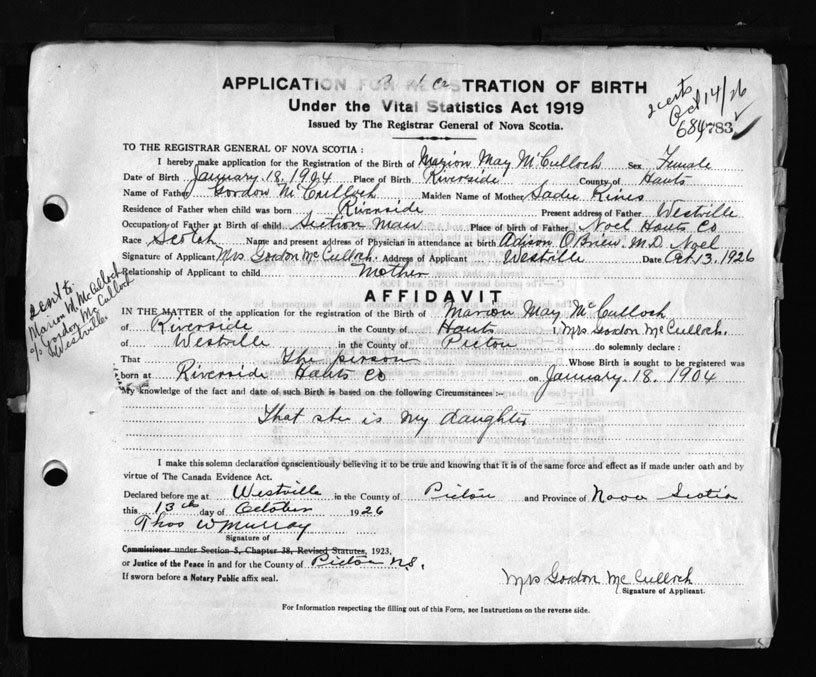 APPLICATION FOR REGISTRATION OF BIRTH
Under the Vital Statistics Act 1919
Issued by The Registrar General of Nova Scotia.
2 certs
Oct 14/26
684783
TO THE REGISTRAR GENERAL OF NOVA SCOTIA :
I hereby make application for the Registration of the Birth of Marion May McCulloch Sex Female
Date of Birth January 18, 1904 Place of Birth Riverside County of Hants
Name of Father Gordon McCulloch Maiden Name of Mother Sadie Hines
Residence of Father when child was born Riverside Present address of Father Westville
Occupation of Father at Birth of child Section Man Place of birth of Father Noel Hants Co
Race Scotch Name and present address of Physician in attendance at birth Adison O'Brien M.D. Noel
Signature of Applicant Mrs Gordon McCulloch Address of Applicant Westville Date Oct 13, 1926
Relationship of Applicant to child Mother
sent to
Marion M. McCulloch
c/o Gordon McCulloch
Westville.
AFFIDAVIT
IN THE MATTER of the application for registration of the Birth of Marion May McCulloch
of Riverside in the County of Hants I, Mrs Gordon McCulloch.
of Westville in the County of Pictou do solemnly declare :
That the person Whose Birth is sought to be registered was
born at Riverside Hants Co on January 18, 1904
My knowledge of the fact and date of such Birth is based on the following Circumstances :-
That she is my daughter
I make this solemn declaration conscientiously believing it to be true and knowing that it is of the same force and effect as if made under oath and by
virtue of The Canada Evidence Act.
Declared before me at Westville in the County of Pictou and Province of Nova Scotia
this 13th day of October 1926
Thos W Murray
Signature of
Commissioner under Section 5, Chapter 38, Revised Statutes, 1923,
or Justice of the Peace in and for the County of Pictou N.S.
If sworn before a Notary Public affix seal.
Mrs Gordon McCulloch
Signature of Applicant.
For Information respecting the filling out of this Form, see Instructions on the reverse side.